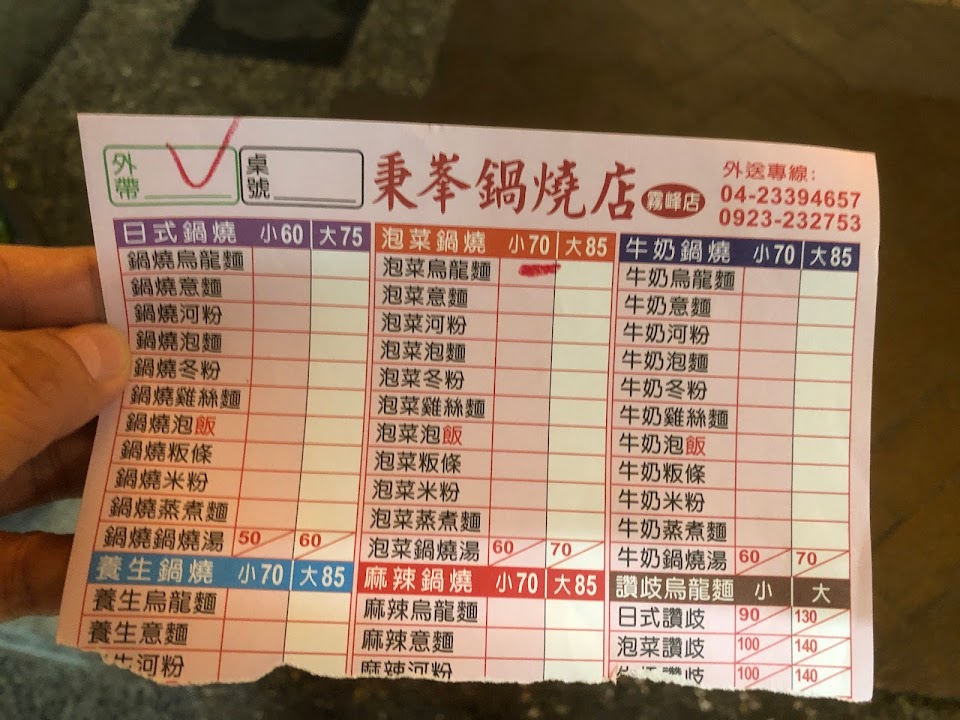 外帶
桌號
秉峯鍋燒店 霧峰店
外送專線:
04-23394657
0923-232753
日式鍋燒 小60 大75
鍋燒烏龍麵
鍋燒意麵
鍋燒河粉
鍋燒泡麵
鍋燒冬粉
鍋燒雞絲麵
鍋燒泡飯
鍋燒粄條
鍋燒米粉
鍋燒蒸煮麵
鍋燒鍋燒湯 50 60
養生鍋燒 小70 大85
養生烏龍麵
養生意麵
生河粉
泡菜鍋燒 小70 大85
泡菜烏龍麵
泡菜意麵
泡菜河粉
泡菜泡麵
泡菜冬粉
泡菜雞絲麵
泡菜泡飯
泡菜粄條
泡菜米粉
泡菜蒸煮麵
泡菜鍋燒湯 60 70
麻辣鍋燒 小70 大85
麻辣烏龍麵
麻辣意麵
麻辣河粉
牛奶鍋燒 小70 大85
牛奶烏龍麵
牛奶意麵
牛奶河粉
牛奶泡麵
牛奶冬粉
牛奶雞絲麵
牛奶泡飯
牛奶粄條
牛奶米粉
牛奶蒸煮麵
牛奶鍋燒湯 60 70
讚歧烏龍麵 小 大
日式讚歧 90 130
泡菜讚歧 100 140
牛奶讚歧 100 140